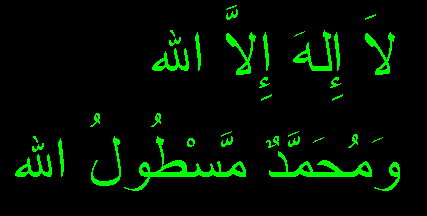 لاَ إِلهَ إِلاَّ الله
وَمُحَمَّدٌ مَّسْطُولُ الله